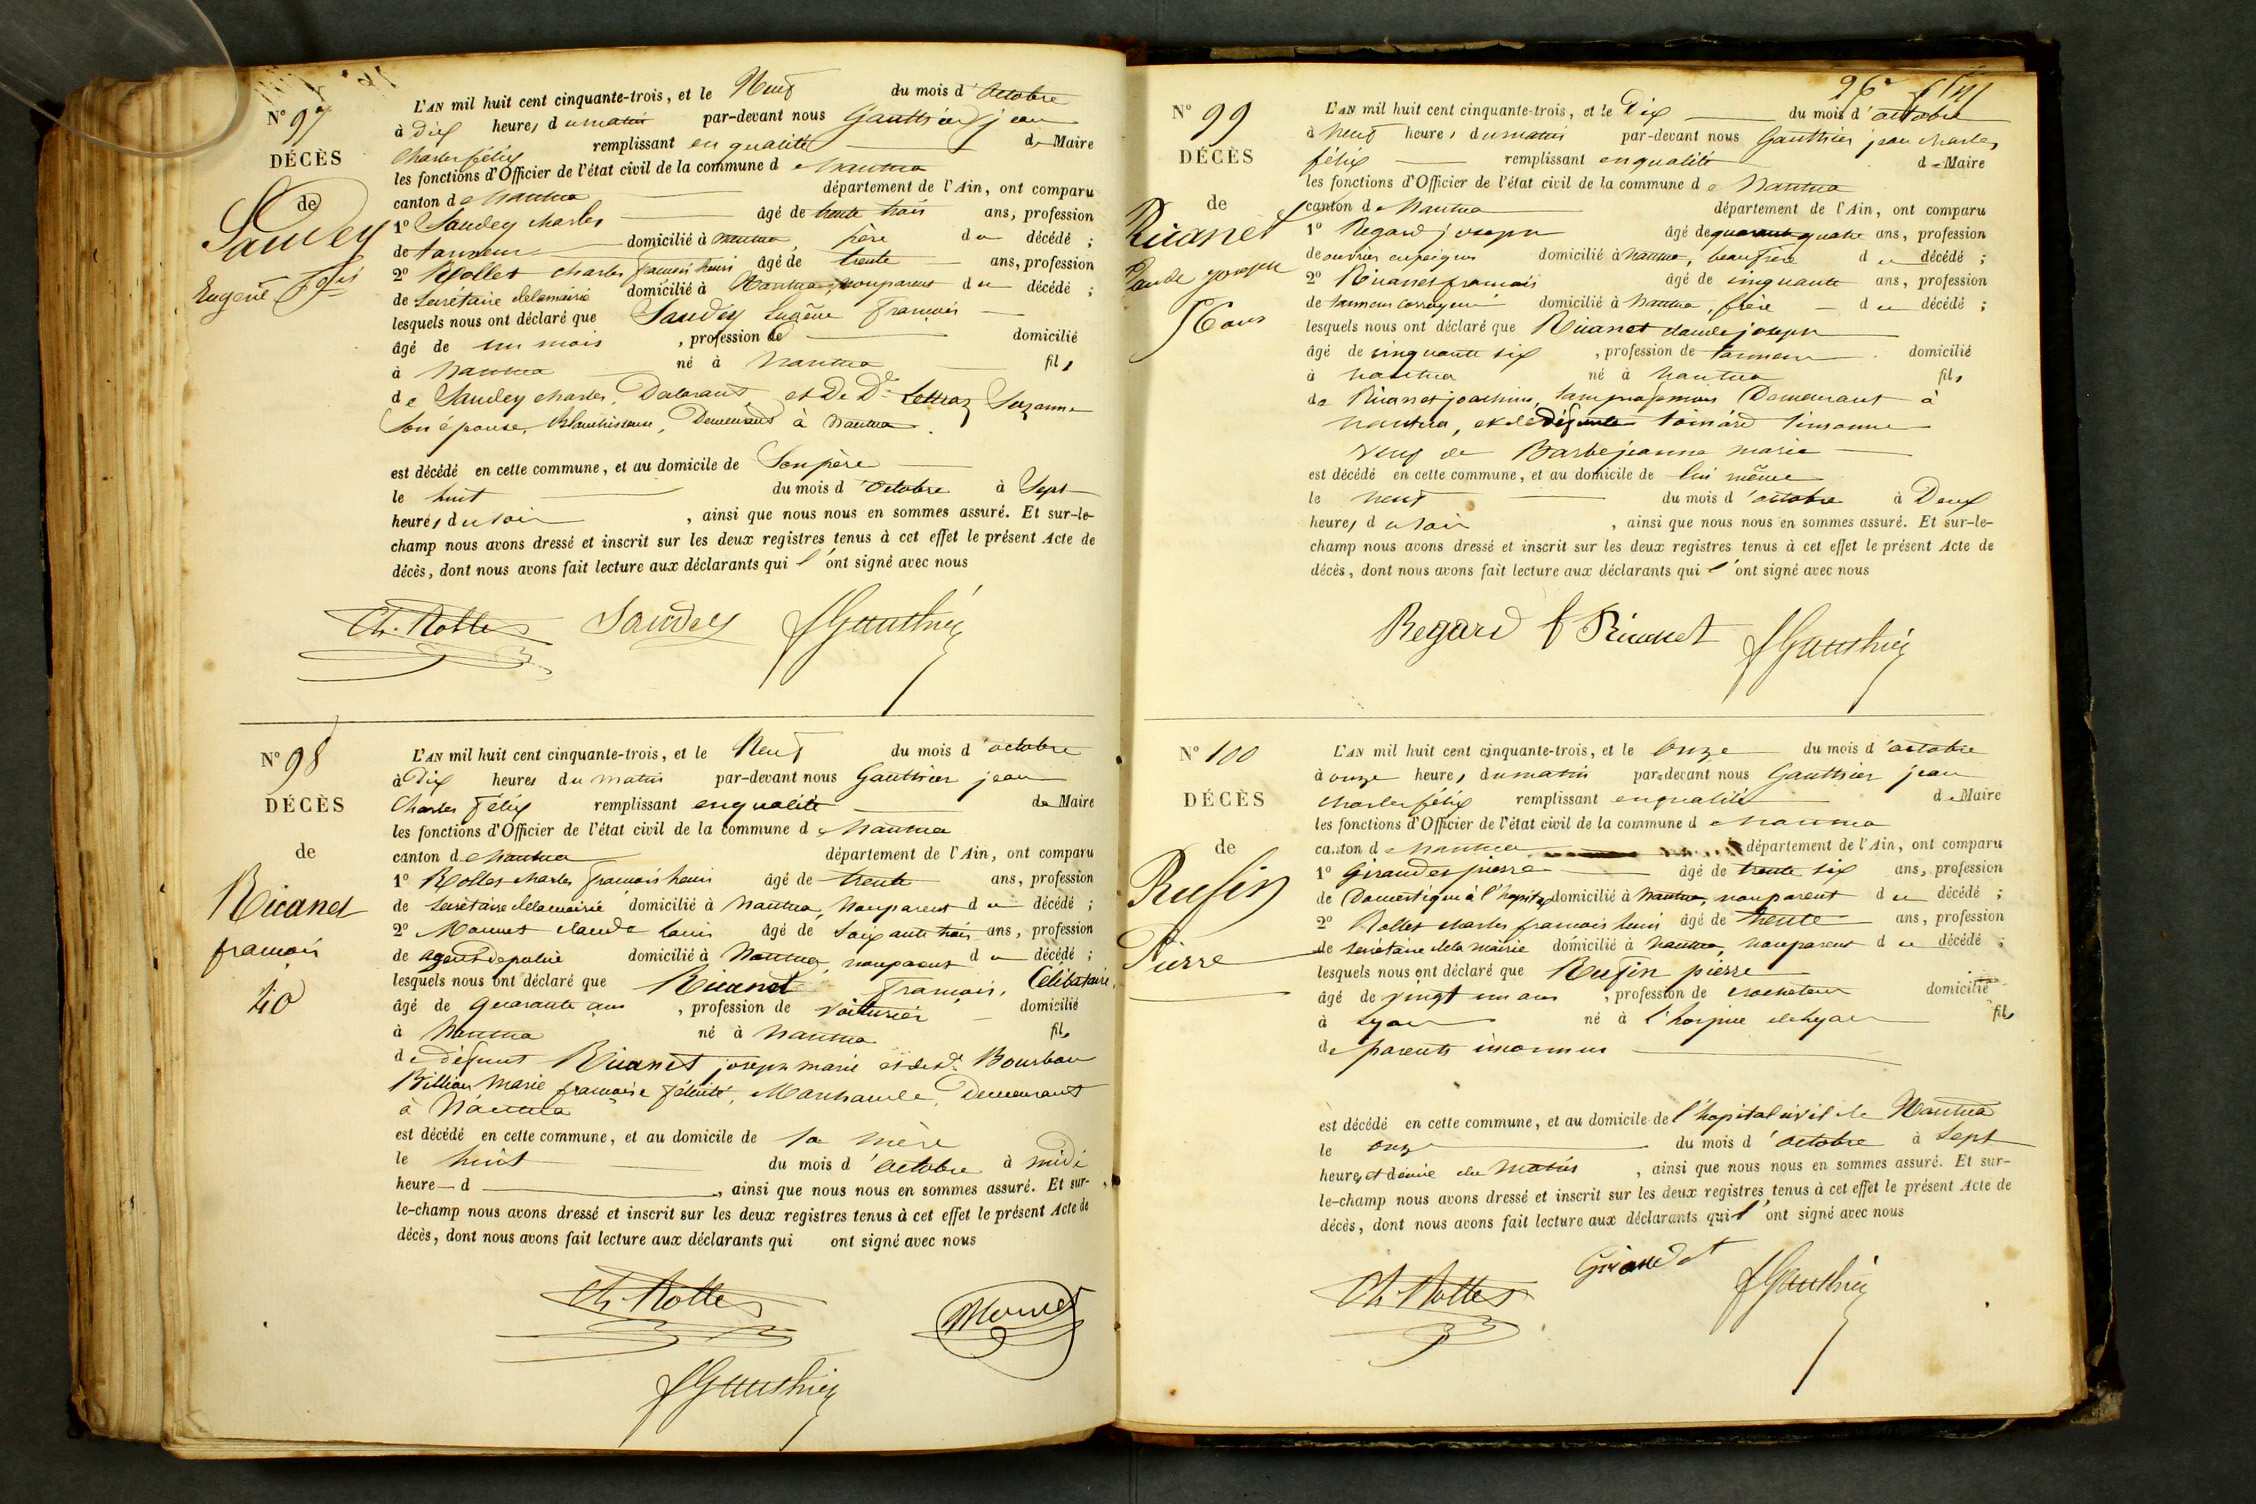 N° 97
DÉCÈS
de
Saudey
Eugène f.ois
L'AN mil huit cent cinquante-trois, et le Neuf du mois d'octobre
à dix heures du matin par-devant nous Gauthier jean
Charles félix remplissant en qualité de Maire
les fonctions d'Officier de l'état civil de la commune de Nantua
canton de Nantua département de l'Ain, ont comparu
1° Saudey charles âgé de trente trois ans, profession
de tanneur domicilié à nantua, père du décédé ;
2° Rollet charles francois henri âgé de trente ans, profession
de secrétaire de la mairie domicilié à Nantua, non parent du décédé ;
lesquels nous ont déclaré que Saudey Eugène François
âgé de un mois , profession de domicilié
à Nantua né à Nantua fils
de Saudey charles, Déclarant, et De De Lettraz Suzanne
Son épouse, Blanchisseuse, Demeurant à Nantua.
est décédé en cette commune, et au domicile de Son père
le huit du mois d'octobre à Sept
heures du soir , ainsi que nous nous en sommes assuré. Et sur-le-
champ nous avons dressé et inscrit sur les deux registres tenus à cet effet le présent Acte de
décès, dont nous avons fait lecture aux déclarants qui l'ont signé avec nous
Ch. Rollet Saudey f Gauthier
N° 98
DÉCÈS
de
Ricanet
francois
40
L'AN mil huit cent cinquante-trois, et le Neuf du mois d'octobre
à Dix heures du matin par-devant nous Gauthier jean
Charles Félix remplissant en qualité de Maire
les fonctions d'Officier de l'état civil de la commune de Nantua
canton de Nantua département de l'Ain, ont comparu
1° Rollet charles francois henri âgé de trente ans, profession
de secrétaire de la mairie domicilié à Nantua, Non parent du décédé ;
2° Monnet claude louis âgé de soixante trois ans, profession
de agent de police domicilié à Nantua, non parent du décédé ;
lesquels nous ont déclaré que Ricanet francois, Célibataire,
âgé de quarante ans , profession de voiturier domicilié
à Nantua né à Nantua fils
de défunt Ricanet joseph marie et de de Bourbon
Billion Marie francoise félicité, Marchande, Demeurant
à Nantua
est décédé en cette commune, et au domicile de Sa mère
le huit du mois d'octobre à midi
heure d , ainsi que nous nous en sommes assuré. Et sur-
le-champ nous avons dressé et inscrit sur les deux registres tenus à cet effet le présent Acte de
décès, dont nous avons fait lecture aux déclarants qui ont signé avec nous
Ch. Rollet Monnet
f Gauthier
26e
N° 99
DÉCÈS
de
Ricanet
Claude joseph
56 ans
L'AN mil huit cent cinquante-trois, et le Dix du mois d'octobre
à neuf heures du matin par-devant nous Gauthier jean charles
félix remplissant en qualité de Maire
les fonctions d'Officier de l'état civil de la commune de Nantua
canton de Nantua département de l'Ain, ont comparu
1° Regard joseph âgé de quarante quatre ans, profession
de ouvrier en peignes domicilié à nantua, beau frère du décédé ;
2° Ricanet francois âgé de cinquante ans, profession
de tanneur corroyeur domicilié à Nantua, frère du décédé ;
lesquels nous ont déclaré que Ricanet claude joseph
âgé de cinquante six , profession de tanneur domicilié
à nantua né à nantua fils
de Ricanet joachim, sans profession Demeurant à
Nantua, et de défunte
veuf de Barbe jeanne marie
est décédé en cette commune, et au domicile de lui même
le neuf du mois d'octobre à Deux
heures du soir , ainsi que nous nous en sommes assuré. Et sur-le-
champ nous avons dressé et inscrit sur les deux registres tenus à cet effet le présent Acte de
décès, dont nous avons fait lecture aux déclarants qui l'ont signé avec nous
Regard f Ricanet f Gauthier
N° 100
DÉCÈS
de
Rufin
Pierre
L'AN mil huit cent cinquante-trois, et le onze du mois d'octobre
à onze heures du matin par-devant nous Gauthier jean
charles félix remplissant en qualité de Maire
les fonctions d'Officier de l'état civil de la commune de Nantua
canton de Nantua département de l'Ain, ont comparu
1° Giraudet pierre âgé de trente six ans, profession
de Domestique à l'hopital domicilié à Nantua, non parent du décédé ;
2° Rollet charles francois henri âgé de trente ans, profession
de secrétaire de la mairie domicilié à Nantua, non parent du décédé ;
lesquels nous ont déclaré que Rufin pierre
âgé de vingt un ans , profession de crocheteur domicilié
à Lyon né à l'hospice de Lyon fils
de parents inconnus
est décédé en cette commune, et au domicile de l'hopital civil de Nantua
le onze du mois d'octobre à Sept
heures et demie du Matin , ainsi que nous nous en sommes assuré. Et sur-
le-champ nous avons dressé et inscrit sur les deux registres tenus à cet effet le présent Acte de
décès, dont nous avons fait lecture aux déclarants qui l'ont signé avec nous
Ch. Rollet Giraudet f Gauthier